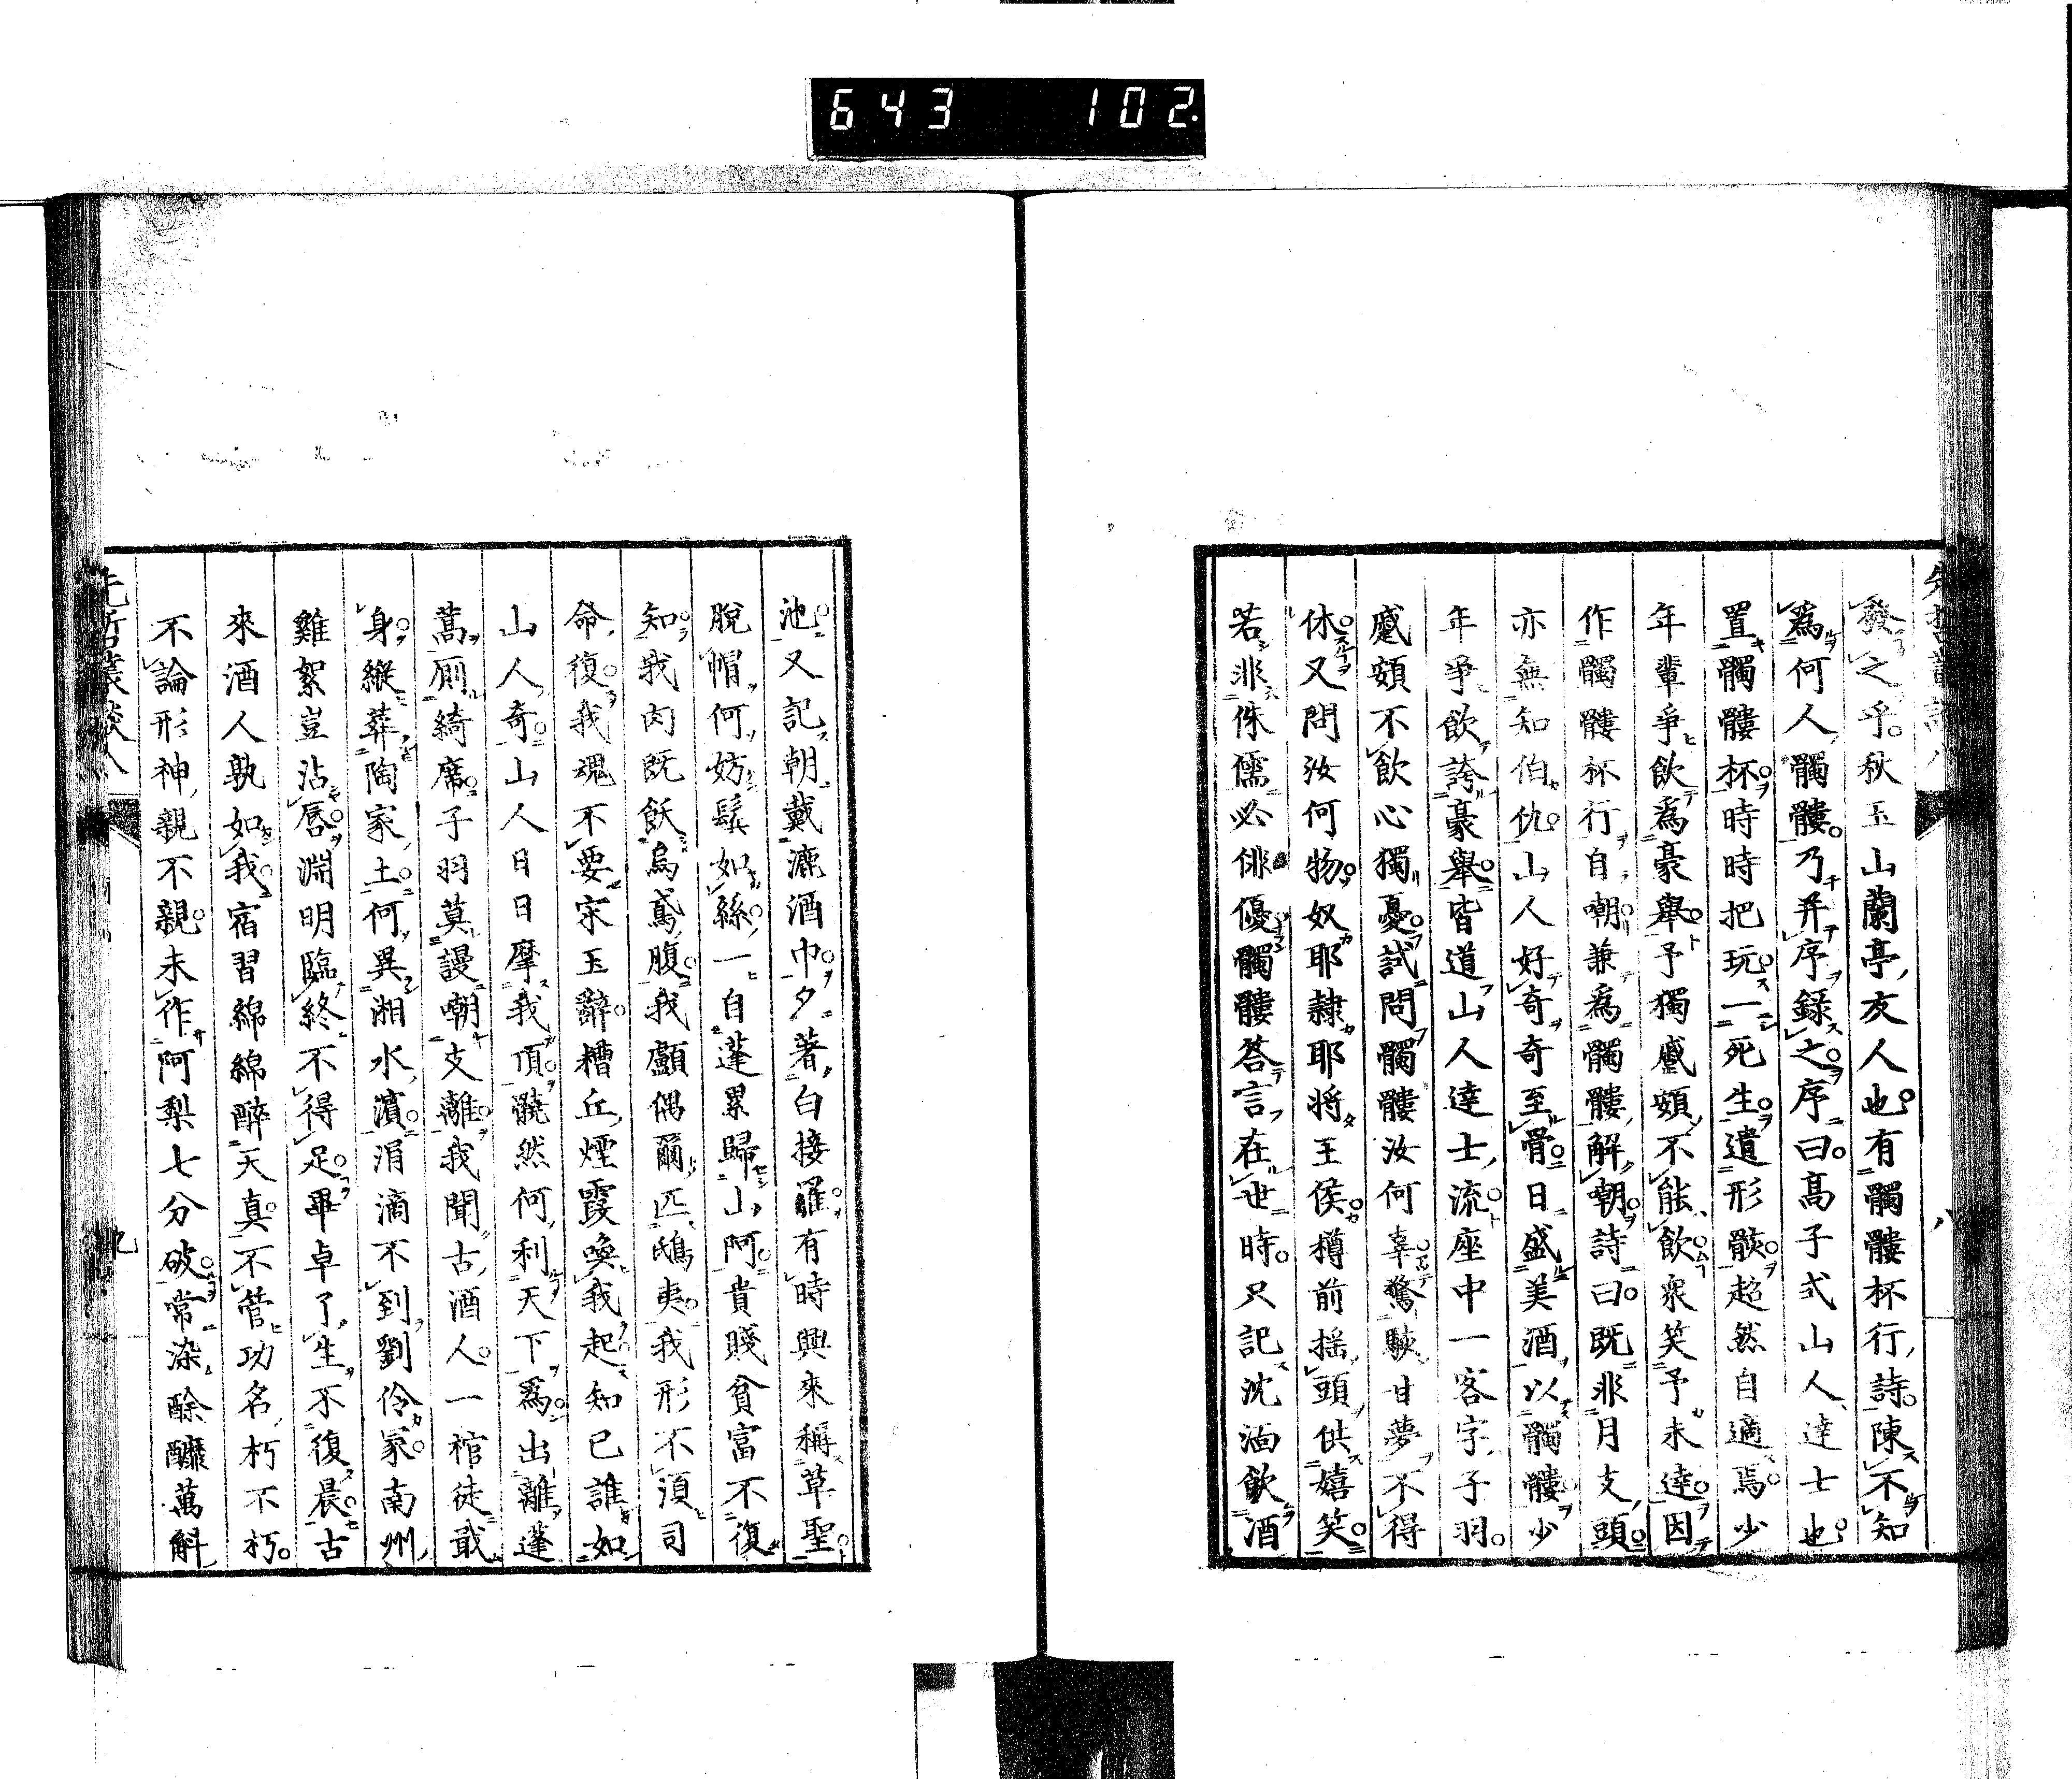 643 102
發之乎。秋玉山蘭亭友人也。有髑髏杯行詩。陳不知
爲何人髑髏。乃幷序錄之。序曰。髙子式山人達士也。
置髑髏杯。時時把玩。一死生。遺形骸。超然自適焉。少
年輩爭飲爲豪舉。予獨蹙頞不能飲。衆笑予未達。因
作髑髏杯行。自嘲。兼爲髑髏解嘲。詩曰。既非月支頭。
亦無知伯仇。山人好奇奇至骨。日盛美酒以髑髏。少
年爭飲誇豪舉。皆道山人達士流。座中一客字子羽。
蹙頞不飲心獨憂。試問髑髏汝何辜。驚駭甘夢不得
休。又問汝何物。奴耶隷耶將王侯。樽前搖頭供嬉笑。
若非侏儒必俳優。髑髏答言在世時。只記沈湎飲酒
池。又記朝戴漉酒巾。夕著白接羅。有時興來稱草聖。
脫帽何妨鬂如絲。一自蓬累歸山阿。貴賤貧富不復
知。我肉既飫烏鳶腹。我顱偶爾匹鴟夷。我形不須司
命復。我魂不要宋玉辭。糟丘煙霞喚我起。知已誰如
山人奇。山人日日摩我頂。髐然何利天下爲。出離蓬
蒿厠綺席。子羽莫謾嘲支離。我聞古酒人。一棺徒戢
身。縱葬陶家土。何異湘水濱。涓滴不到劉伶冢。南州
雞絮豈沾唇。淵明臨終不得足。畢卓了生不復晨。古
來酒人孰如我。宿習綿綿醉天真。不管功名朽不朽。
不論形神親不親。未作阿梨七分破。常染酴醿萬斛